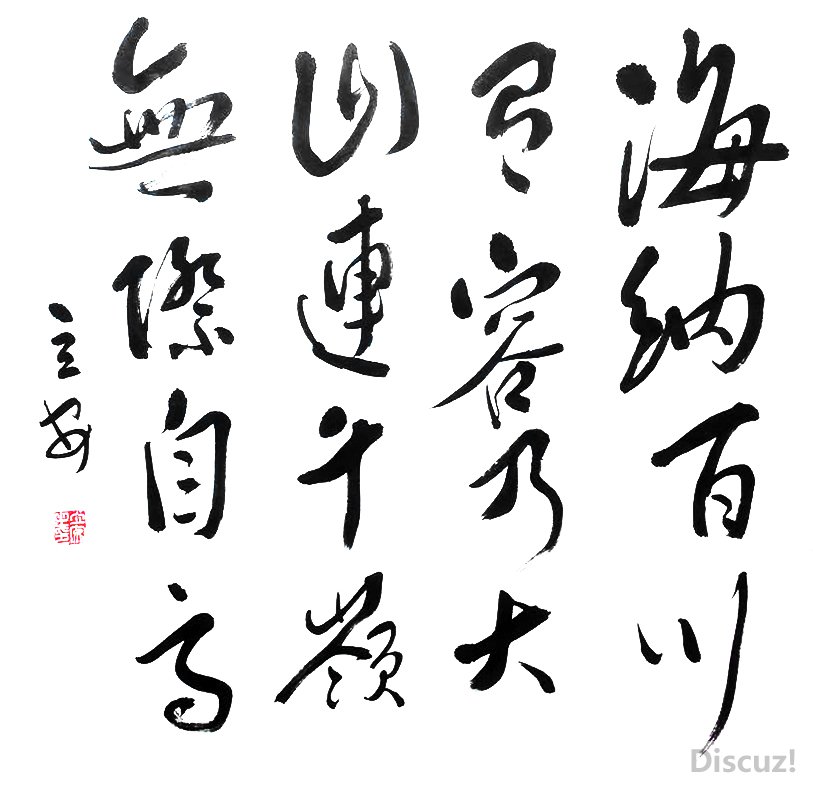 海納百川
有容乃大
山連千嶺
無際自高
立安
Discuz!